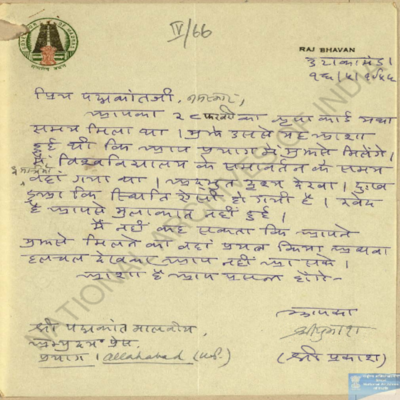 IV/66
RAJ BHAVAN
प्रिय पद्मकांतजी, नमस्कार,
आपका २८ फरवरी का कृपा कार्ड यथा
समय मिला था। मुझे उससे यह आशा
हुई थी कि आप प्रयाग में मुझसे मिलेंगे।
मैं विश्वविद्यालय के समावर्तन के समय
वहां गया था। अद्भुत दृश्य देखा। दुःख
हुआ कि स्थिति ऐसी हो गयी है। खेद
है आपसे मुलाकात नहीं हुई।
मैं नहीं कह सकता कि आपने
मुझसे मिलने का वहां प्रयत्न किया अथवा
हलचल देखकर आप नहीं आ सके।
आशा है आप प्रसन्न होंगे-
आपका
श्रीप्रकाश
(श्री प्रकाश)
श्री पद्मकांत मालवीय,
अभ्युदय प्रेस,
प्रयाग। Allahabad (U.P.)
NATIONAL ARCHIVES OF INDIA